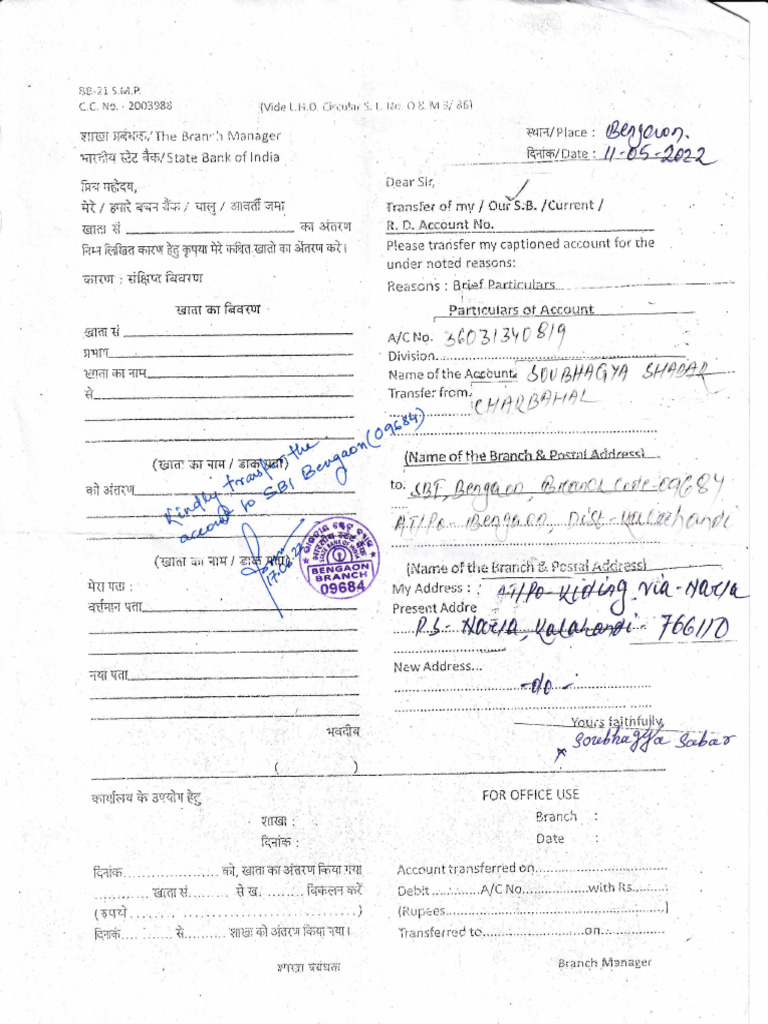 BB-21 S.M.P.
C.C. No. - 2003988
(Vide L.H.O. Circular S. L. No. O & M 3/ 86)
शाखा प्रबंधक/The Branch Manager
भारतीय स्टेट बैंक/State Bank of India
स्थान/Place : Bengaon.
दिनांक/Date : 11-05-2022
प्रिय महोदय,
मेरे / हमारे बचत बैंक / चालु / आवर्ती जमा
खाता सं का अंतरण
निम्न लिखित कारण हेतु कृपया मेरे कथित खातो का अंतरण करे।
कारण : संक्षिप्त विवरण
खाता का विवरण
खाता सं
प्रभाग
खाता का नाम
से
(खाता का नाम / डाक पता)
को अंतरण
(खाता का नाम / डाक पता)
मेरा पता :
वर्त्तमान पता
नया पता
भवदीय
( )
Dear Sir,
Transfer of my / Our S.B. /Current /
R. D. Account No.
Please transfer my captioned account for the
under noted reasons:
Reasons : Brief Particulars
Particulars of Account
A/C No. 36031340819
Division
Name of the Account SOUBHAGYA SHABAR
Transfer from CHARBAHAL
(Name of the Branch & Postal Address)
to. SBI, Bengaon, Branch Code-09684
AT/Po- Bengaon, Dist-Kalahandi
(Name of the Branch & Postal Address)
My Address : AT/Po-Kiding via-Narla
Present Addre
P.S- Narla, Kalahandi- 766110
New Address...
-do-
Yours faithfully
Soubhagya Sabar
Kindly transfer the
account to SBI Bengaon (09684)
17.06.22
STATE BANK OF INDIA
BENGAON
BRANCH
09684
कार्यालय के उपयोग हेतु
शाखा :
दिनांक :
दिनांक को, खाता का अंतरण किया गया
खाता सं से ख. विकलन करें
(रुपये )
दिनांक से शाखा को अंतरण किया गया।
शाखा प्रबंधता
FOR OFFICE USE
Branch :
Date :
Account transferred on
Debit A/C No. with Rs.
(Rupees )
Transferred to on
Branch Manager